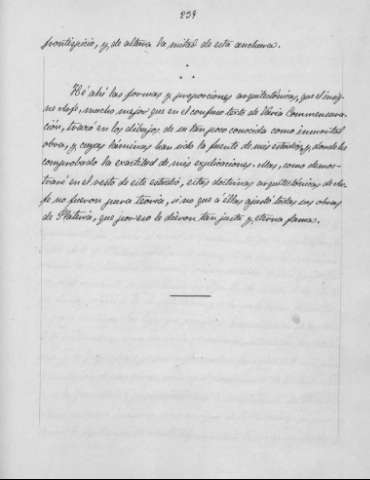 234
frontispicio, y, de altura la mitad de esta anchura.
Hé ahí las formas y proporciones arquitectónicas, que el insig-
ne Arfe, mucho mejor que en el confuso texto de Varia Commensura-
ción, trazó en los dibujos de su tan poco conocida como inmortal
obra, y cuyas láminas han sido la fuente de mis estudios, y donde he
comprobado la exactitud de mis explicaciones. Mas, como demos-
traré en el resto de este estudio, estas doctrinas arquitectónicas de Ar-
fe no fueron pura teoria, si no que a ellas ajustó todas sus obras
de Plateria, que por eso le dieron tan justa y eterna fama.